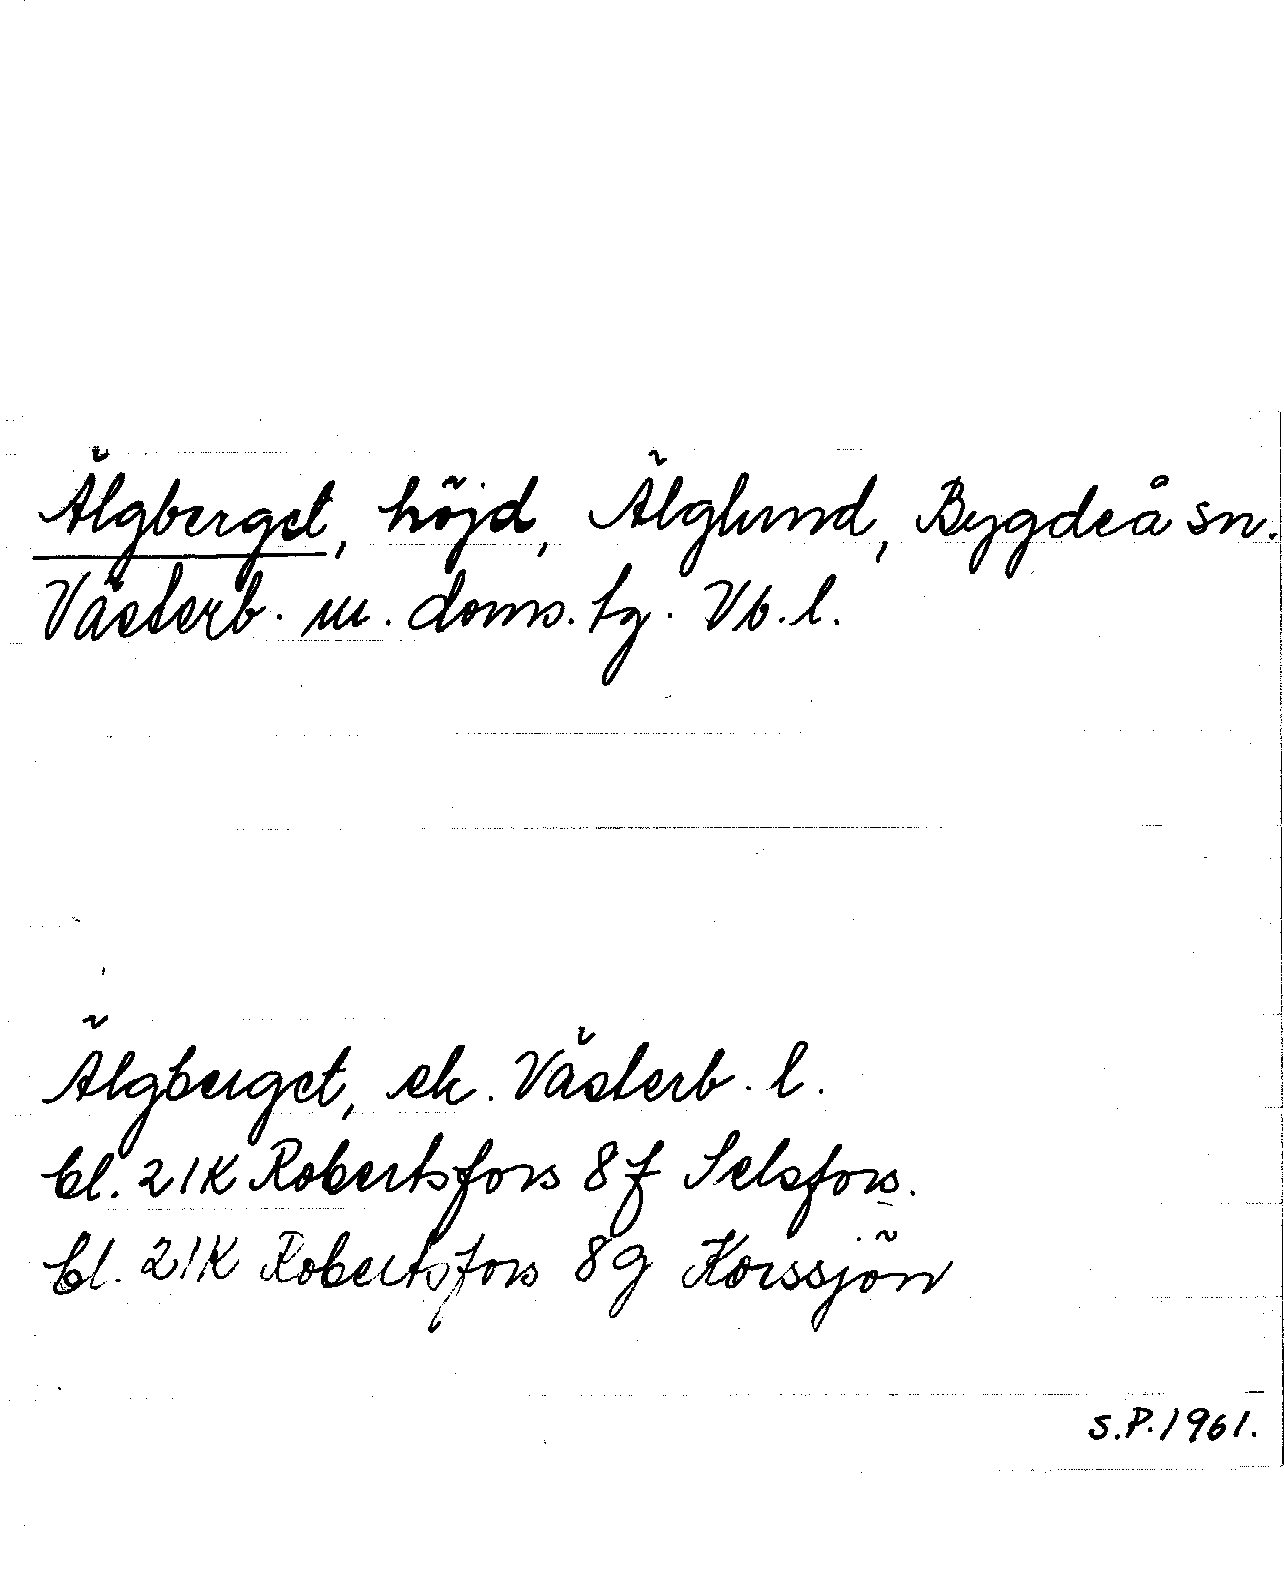 Älgberget, höjd, Älglund, Bygdeå sn.
Västerb. m. doms. tg. Vb. l.
Älgberget, ek. Västerb. l.
bl. 21K Robertsfors 8f Selsfors.
bl. 21K Robertsfors 8g Korssjön
S.P. 1961.